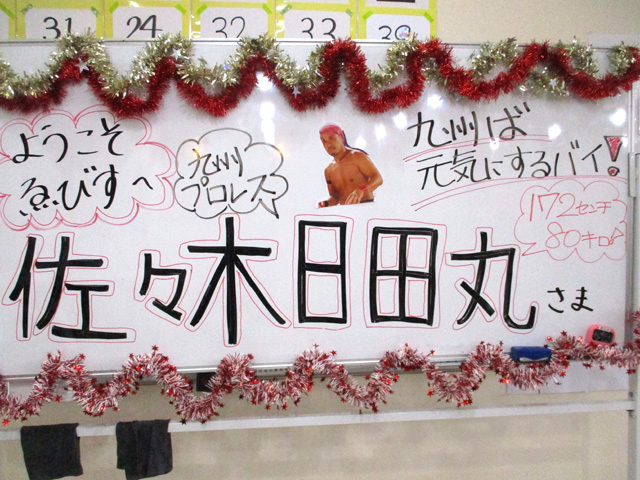 31 24 32 33 39
ようこそ
ゑびすへ
九州
プロレス
九州ば
元気にするバイ!
172センチ
80キロ
佐々木日田丸さま